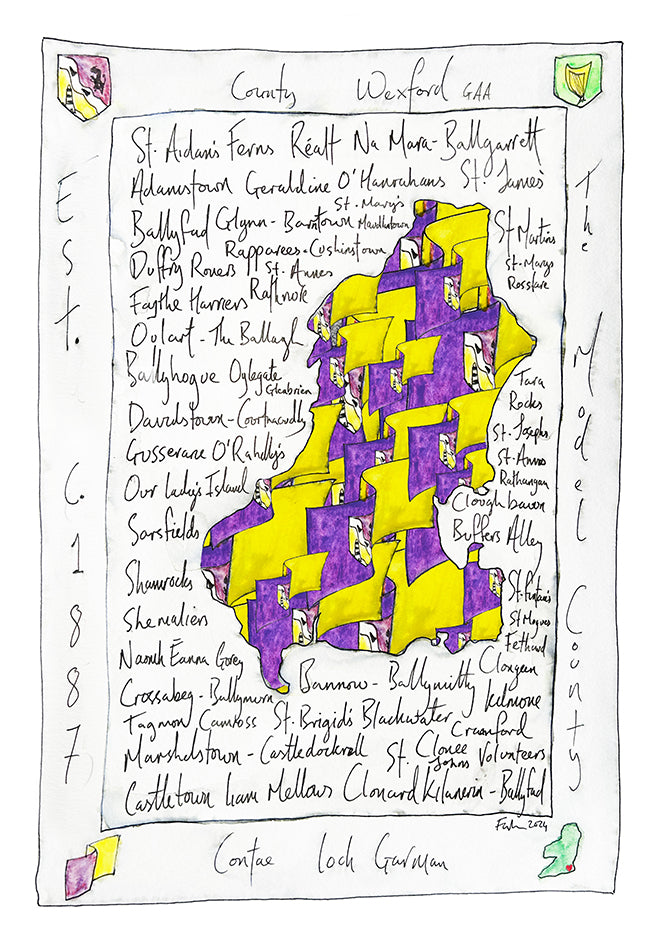 County Wexford GAA
Est. C. 1887
The Model County
St. Aidan's Ferns Réalt Na Mara - Ballgarrett
Adamstown Geraldine O'Hanrahans St. James'
St. Mary's
Ballyfad Glynn - Barntown Maudlintown
St Martins
Rapparees - Cushinstown
Duffry Rovers St. Annes
St. Marys
Rosslare
Faythe Harriers Rathnure
Oulart - The Ballagh
Ballyhogue Oylegate
Glenbrien
Tara
Rocks
Davidstown - Courtnacuddy
St. Josephs
Gusserane O'Rahilly's
St. Annes
Rathangan
Our Lady's Island
Cloughbawn
Sarsfields
Buffers Alley
Shamrocks
St. Fintan's
Shemaliers
St Mogues
Fethard
Naomh Éanna Gorey
Clongeen
Bannow - Ballymitty
Crossabeg - Ballymurn
Kilmore
Tagmon Camross St. Brigid's Blackwater
Crawford
Marshalstown - Castledockrell St. Johns
Clonee Volunteers
Castletown Liam Mellows Clonard Kilanerin - Ballyfad
2024
Contae Loch Garman